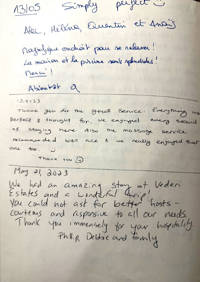 13/05 Simply perfect
Alex, Hélène, Quentin et Anaïs
Magnifique endroit pour se relaxer!
La maison et la piscine sont splendides!
Merci!
Thank you for the good service. Everything was
perfect & thought for. We enjoyed every second
of staying here. Also the massage service
recommended was nice & we really enjoyed that
one too
Thank you
May 21, 2023
We had an amazing stay at Vederi
Estates and a wonderful
You could not ask for better hosts -
courteous and responsive to all our needs.
Thank you immensely for your hospitality.
Debbie and family